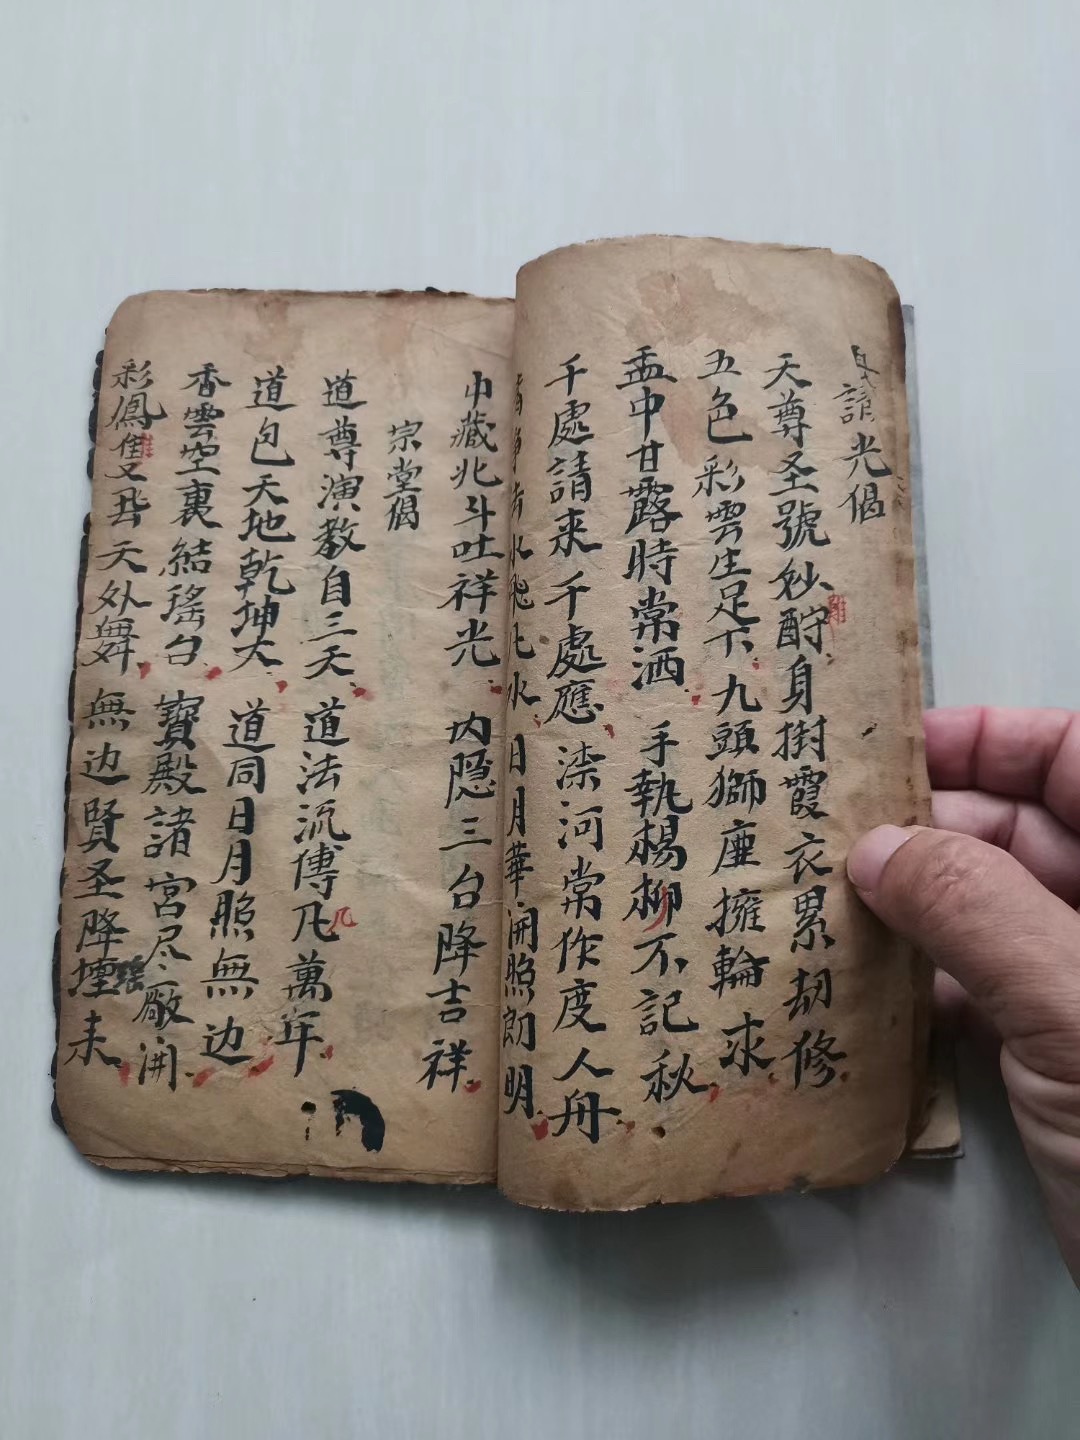 請光偈
天尊圣號妙 身 霞衣累劫修
五色彩雲生足下九頭獅座擁輪求
盂中甘露時常洒 手執楊柳不記秋
千處請来千處應 河常作度人舟
水 水 日月華開照朗明
巾藏北斗吐祥光 内隱三台降吉祥
宗堂偈
道尊演教自三天 道法流傳几萬年
道包天地乾坤大 道同日月照無边
香雲空裏結瑤台 寶殿諸宮尽厰開
彩鳳隻飛天外舞 無边賢圣降壇来